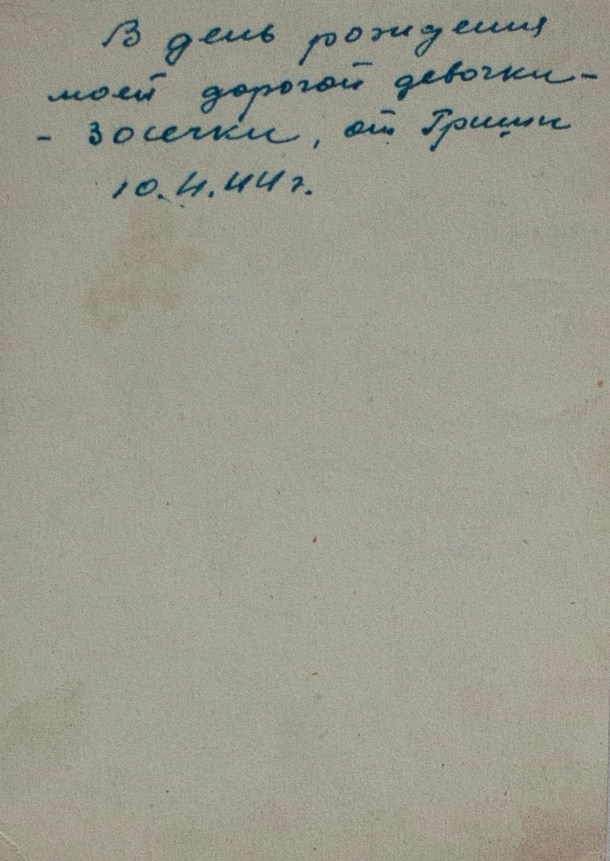 В день рождения
моей дорогой девочки-
- Зосечки, от Гриши
10.4.44 г.